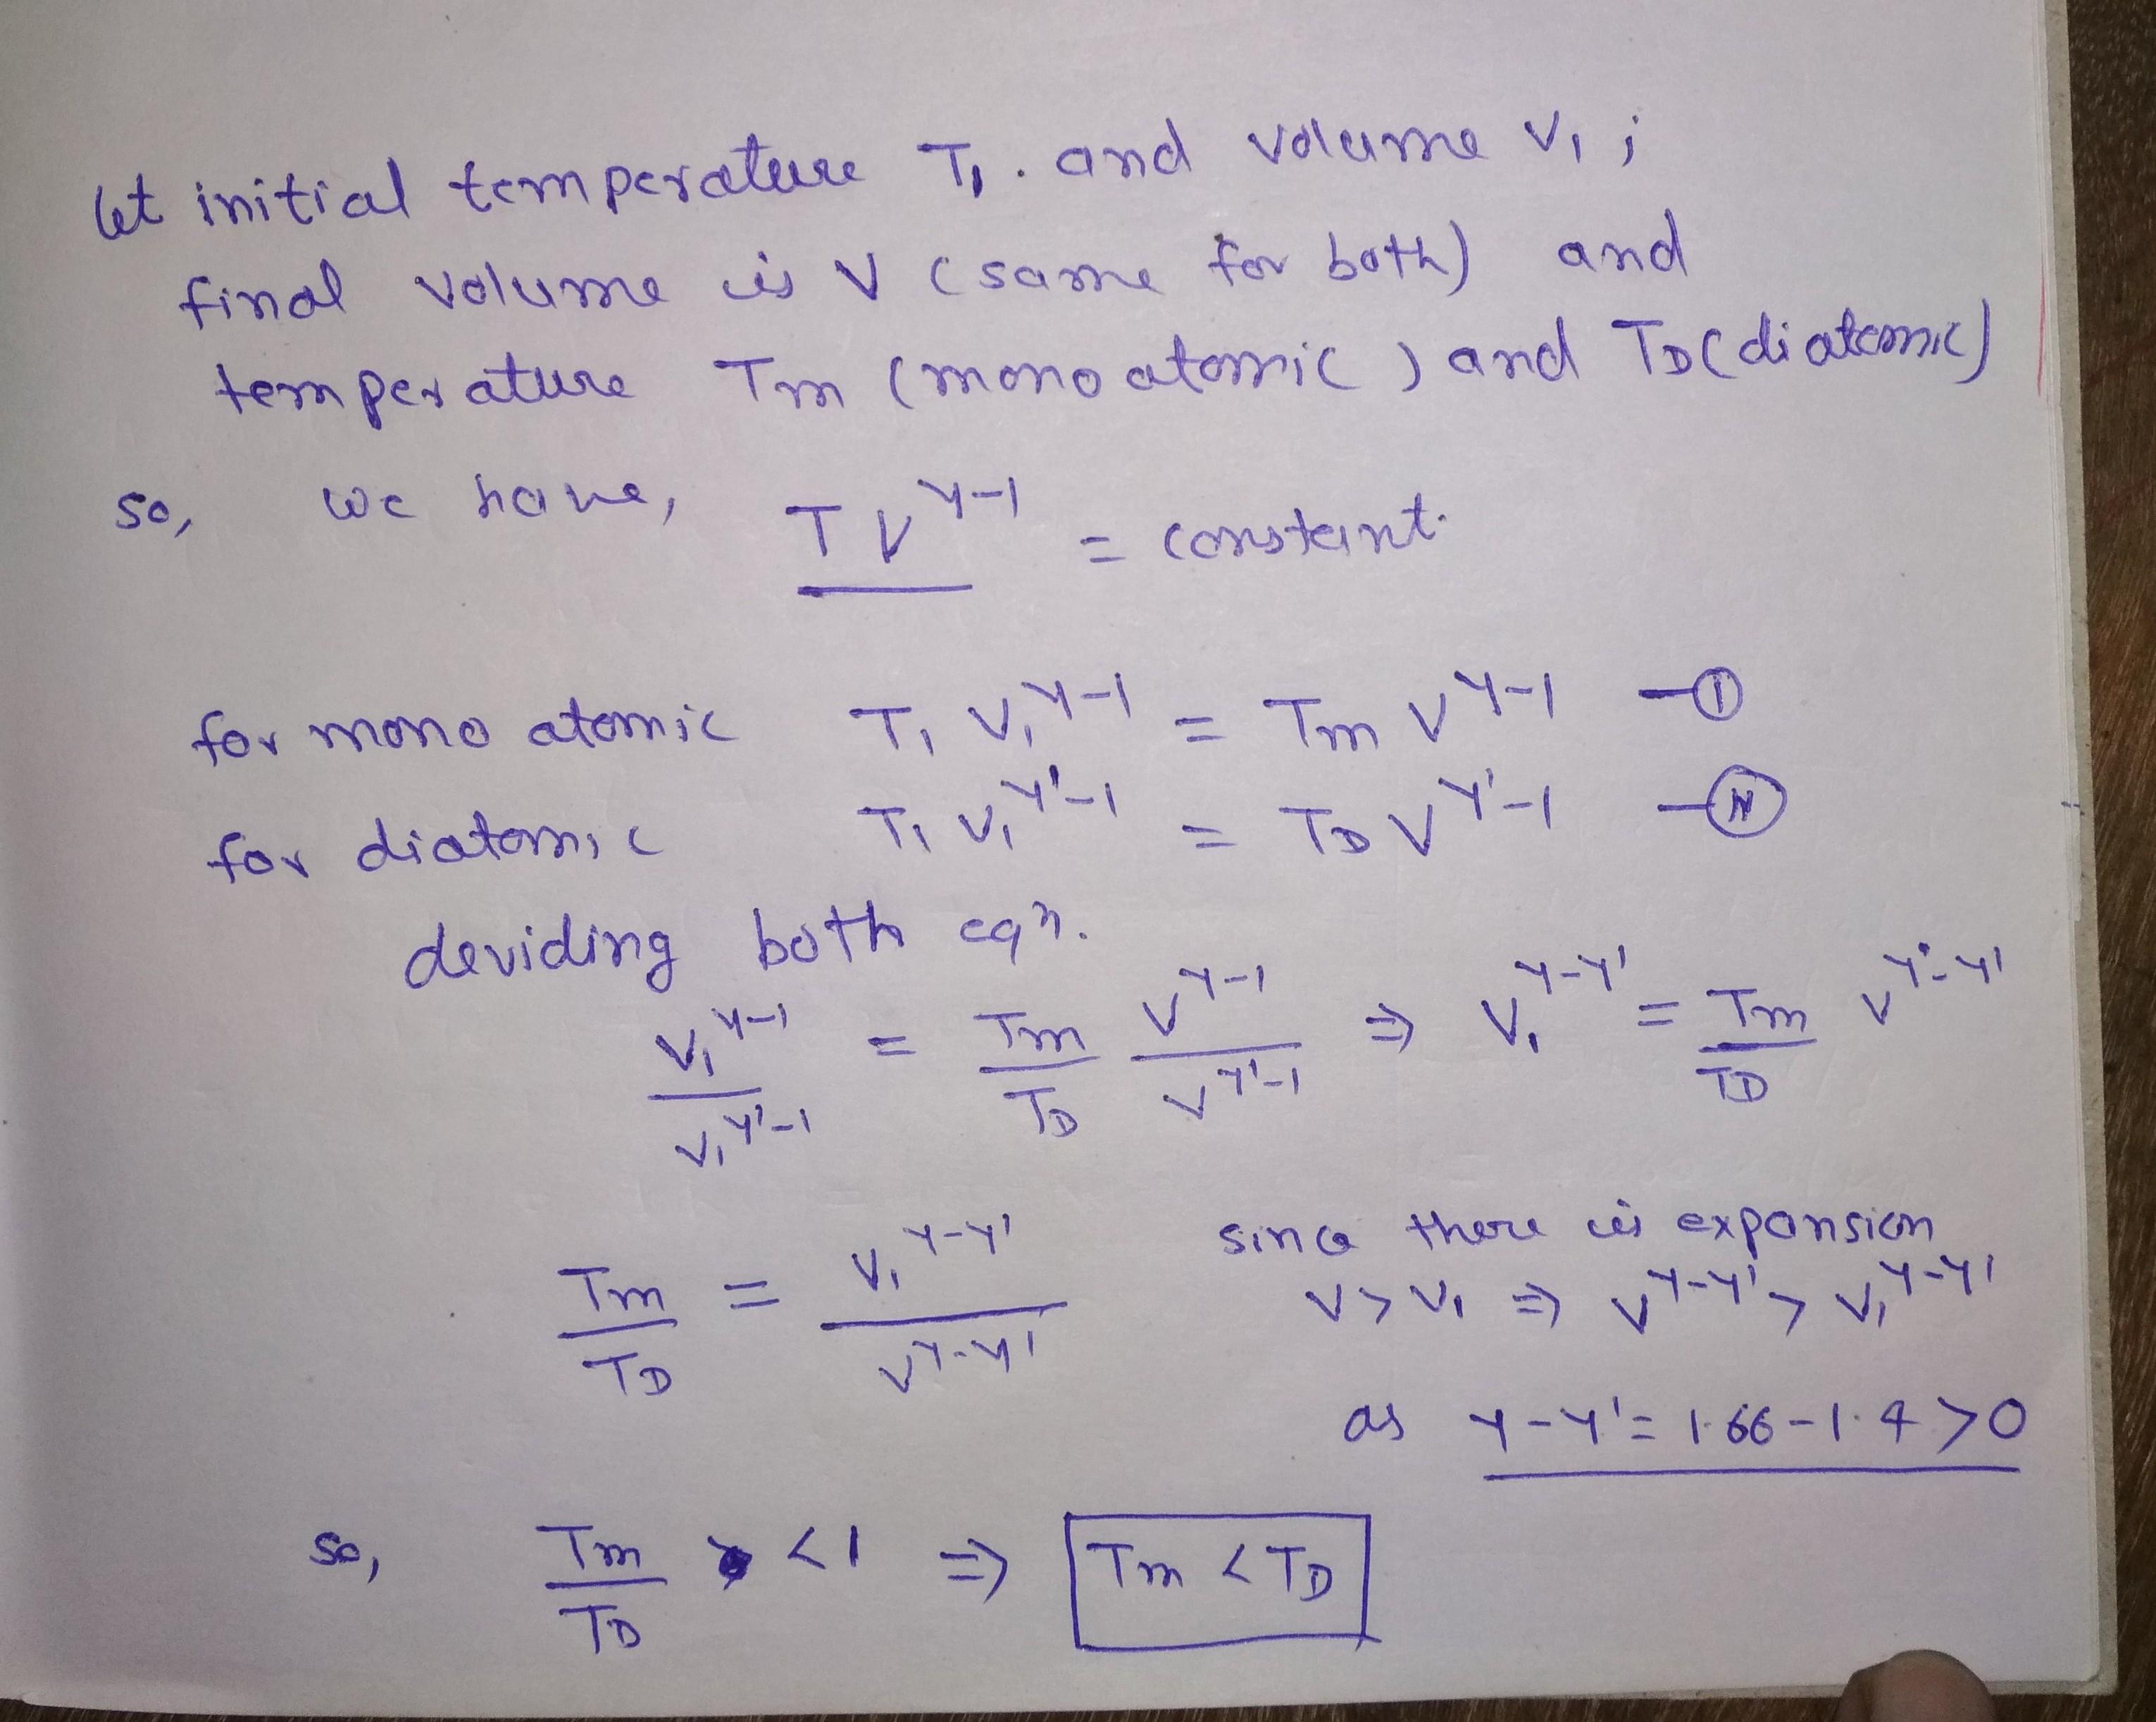 let initial temperature T₁. and volume V₁ ;
final volume is V (same for both) and
temperature Tm (mono atomic) and TD (diatomic)
so, we have, TV^γ-1 = constant.
for mono atomic T₁ V₁^γ-1 = Tm V^γ-1 —①
for diatomic T₁ V₁^γ'-1 = TD V^γ'-1 —Ⓘ
deviding both eqn.
V₁^γ-1 / V₁^γ'-1 = Tm/TD V^γ-1 / V^γ'-1 ⇒ V₁^γ-γ' = Tm/TD V^γ-γ'
Tm/TD = V₁^γ-γ' / V^γ-γ' since there is expansion
V > V₁ ⇒ V^γ-γ' > V₁^γ-γ'
as γ-γ' = 1.66-1.4 >0
so, Tm/TD < 1 ⇒ Tm < TD